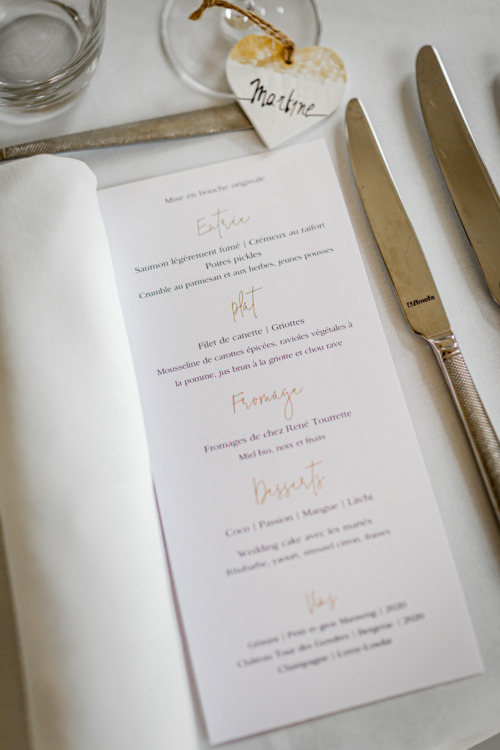 Martine
Mise en bouche originale
Entrée
Saumon légèrement fumé | Crémeux au raifort
Poires pickles
Crumble au parmesan et aux herbes, jeunes pousses
plat
Filet de canette | Griottes
Mousseline de carottes épicées, ravioles végétales à
la pomme, jus brun à la griotte et chou rave
Fromage
Fromages de chez René Tourrette
Miel bio, noix et fruits
Desserts
Coco | Passion | Mangue | Litchi
Wedding cake avec les mariés
Rhubarbe, yaourt, streusel citron, fraises
Vins
| Petit et gros Manseng | 2020
Château Tour des Gendres | Bergerac | 2020
Champagne | Leroy-